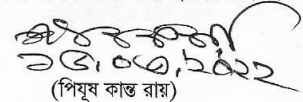 ১৬.০৩.২০২২
(পিযূষ কান্ত রায়)